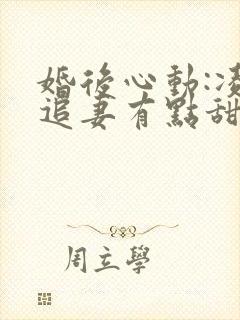 婚後心動:
追妻有點甜
周立學